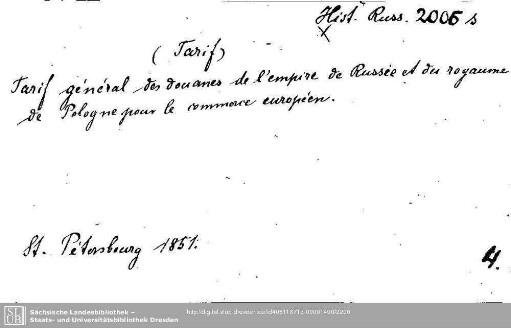 Hist. Russ. 2006 s
(Tarif)
Tarif général des douanes de l'empire de Russie et du royaume
de Pologne pour le commerce européen.
St. Pétersbourg 1851.
4.
Sächsische Landesbibliothek –
Staats- und Universitätsbibliothek Dresden
SLUB